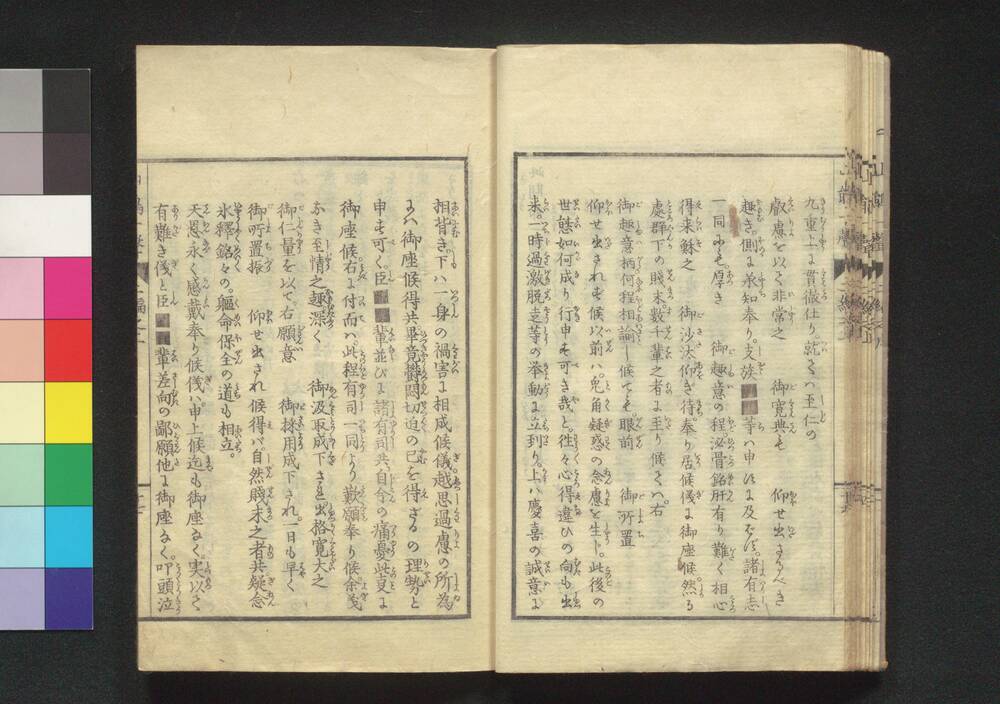 九重上に貫徹仕り就ては至仁の
叡慮を以て非常之　御寛典も　仰せ出さるべき
趣き。側に承知奉り。支族■■等ハ申すに及ばず。諸有志
一同にも厚き　御趣意の程泌骨銘肝有り難く相心
得来蘇之　御沙汰仰ぎ待奉り居候儀に御座候然る
処群下の賤末数千輩之者に至り候てハ。右
御趣意柄何程相諭し候ても。眼前　御所置
仰せ出されず候以前ハ。兎角疑惑の念慮を生じ。此後の
世態如何成り行申す可き哉と。往々心得違ひの向も出
来。一時過激脱走等の挙動に立到り。上ハ慶喜の誠意に
相背き。下ハ一身の禍害に相成候儀越思過慮の所為
にハ御座候得共畢竟欝悶切迫の已を得ざるの理勢と
申す可く臣■■輩並びに諸有司共自今の痛憂此夏に
御座候右に付而ハ。此程有司一同より歎願奉り候余儀
なき至情之趣深く　御汲取成下させ出格寛大之
御仁量を以て。右願意　御採用成下され。一日も早く
御所置振　仰せ出され候得バ自然賤末之者共疑念
氷釋銘々の。軀命保全の道も相立。
天恩永く感戴奉り候儀ハ。申上候迄も御座なく。実以て
有難き儀と臣■■輩差向の鄙願他に御座なく。叩頭泣